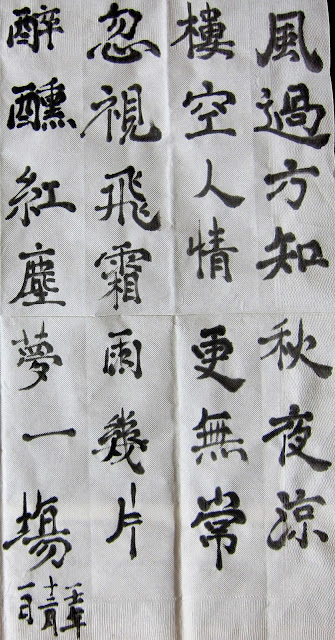 風過方知秋夜涼
樓空人情更無常
忽視飛霜雨幾片
醉醺紅塵夢一場
十二月